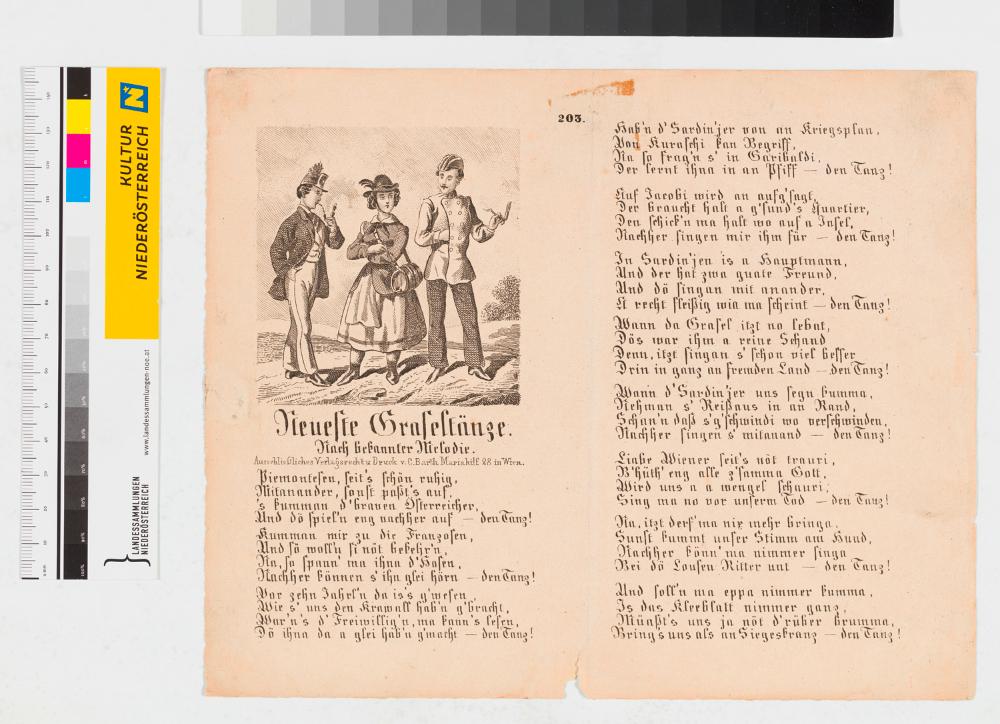 KULTUR
NIEDERÖSTERREICH
www.landessammlungen-noe.at
LANDESSAMMLUNGEN
NIEDERÖSTERREICH
203.
Neueste Graseltänze.
Nach bekannter Melodie.
Ausschließliches Verlagsrecht u. Druck v. C. Barth Mariahilf 28 in Wien.
Piemontesen, seit's schön ruhig,
Mitanander, sonst paßt's auf,
's kumman d'braven Österreicher,
Und dö spiel'n eng nachher auf — den Tanz!
Kumman mir zu die Franzosen,
Und sö woll'n si nöt bekehr'n,
Na, so spann' ma ihna d'Hosen,
Nachher können s' ihn glei hörn — den Tanz!
Vor zehn Jahrl'n da is's g'wesen,
Wie s' uns den Krawall hab'n g'bracht,
War'n's d' Freiwillig'n, ma kann's lesen,
Dö ihna da a glei hab'n g'macht — den Tanz!
Hab'n d' Sardin'jer von an Kriegsplan,
Von Kuraschi kan Begriff,
Na so frag'n s' in Garibaldi,
Der lernt ihna in an Pfiff — den Tanz!
Auf Jacobi wird an aufg'sagt,
Der braucht halt a g'sund's Quartier,
Den schick'n ma halt wo auf a Insel,
Nachher singen mir ihm für — den Tanz!
In Sardin'jen is a Hauptmann,
Und der hat zwa guate Freund,
Und dö singan mit anander,
A recht fleißig wia ma scheint — den Tanz!
Wann da Grasel itzt no lebat,
Dös war ihm a reine Schand
Denn, itzt singan s' schon viel besser
Drin in ganz an fremden Land — den Tanz!
Wann d'Sardin'jer uns segn kumma,
Nehman s' Reißaus in an Rand,
Schau'n daß s' g'schwindi wo verschwinden,
Nachher singen s' mitanand — den Tanz!
Liabe Wiener seit's nöt trauri,
B'hüth' eng alle z'samma Gott,
Wird uns a a wengel schauri,
Sing ma no vor unserm Tod — den Tanz!
Na, itzt derf' ma nix mehr bringa,
Sunst kummt unser Stimm am Hund,
Nachher könn' ma nimmer singa
Bei dö Lousen Ritter unt — den Tanz!
Und soll'n ma eppa nimmer kumma,
Is das Kleeblatt nimmer ganz,
Müaßt's uns ja nöt d'rüber brumma,
Bring's uns als an Siegeskranz — den Tanz!